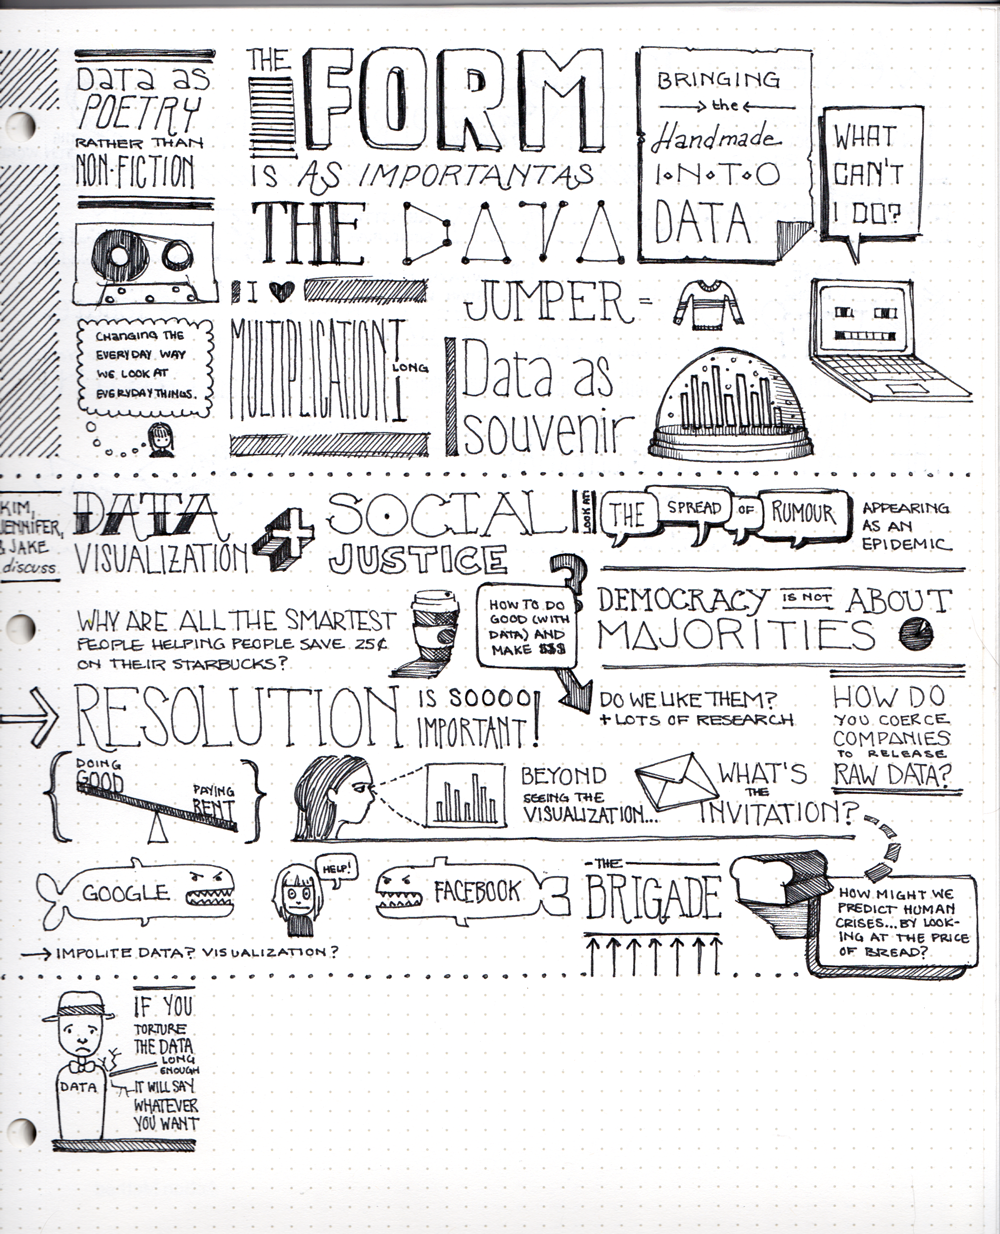 DATA AS
POETRY
RATHER THAN
NON-FICTION
THE
FORM
IS AS IMPORTANT AS
THE DATA
BRINGING
the
Handmade
I•N•T•O
DATA
WHAT
CAN'T
I DO?
CHANGING THE
EVERYDAY WAY
WE LOOK AT
EVERYDAY THINGS.
I
MULTIPLICATION
LONG
JUMPER =
Data as
souvenir
KIM,
JENNIFER,
& JAKE
discuss
DATA
VISUALIZATION
+
SOCIAL
JUSTICE
LOOK AT:
THE
SPREAD
OF
RUMOUR
APPEARING
AS AN
EPIDEMIC
WHY ARE ALL THE SMARTEST
PEOPLE HELPING PEOPLE SAVE 25¢
ON THEIR STARBUCKS?
?
HOW TO DO
GOOD (WITH
DATA) AND
MAKE $$$
DEMOCRACY IS NOT ABOUT
MAJORITIES
RESOLUTION
IS SOOOO
IMPORTANT!
DO WE LIKE THEM?
+ LOTS OF RESEARCH
HOW DO
YOU COERCE
COMPANIES
TO RELEASE
RAW DATA?
DOING
GOOD
PAYING
RENT
BEYOND
SEEING THE
VISUALIZATION...
WHAT'S
THE
INVITATION?
GOOGLE
HELP!
FACEBOOK
-THE-
BRIGADE
HOW MIGHT WE
PREDICT HUMAN
CRISES...BY LOOK-
ING AT THE PRICE
OF BREAD?
→ IMPOLITE DATA? VISUALIZATION?
DATA
IF YOU
TORTURE
THE DATA
LONG
ENOUGH
IT WILL SAY
WHATEVER
YOU WANT